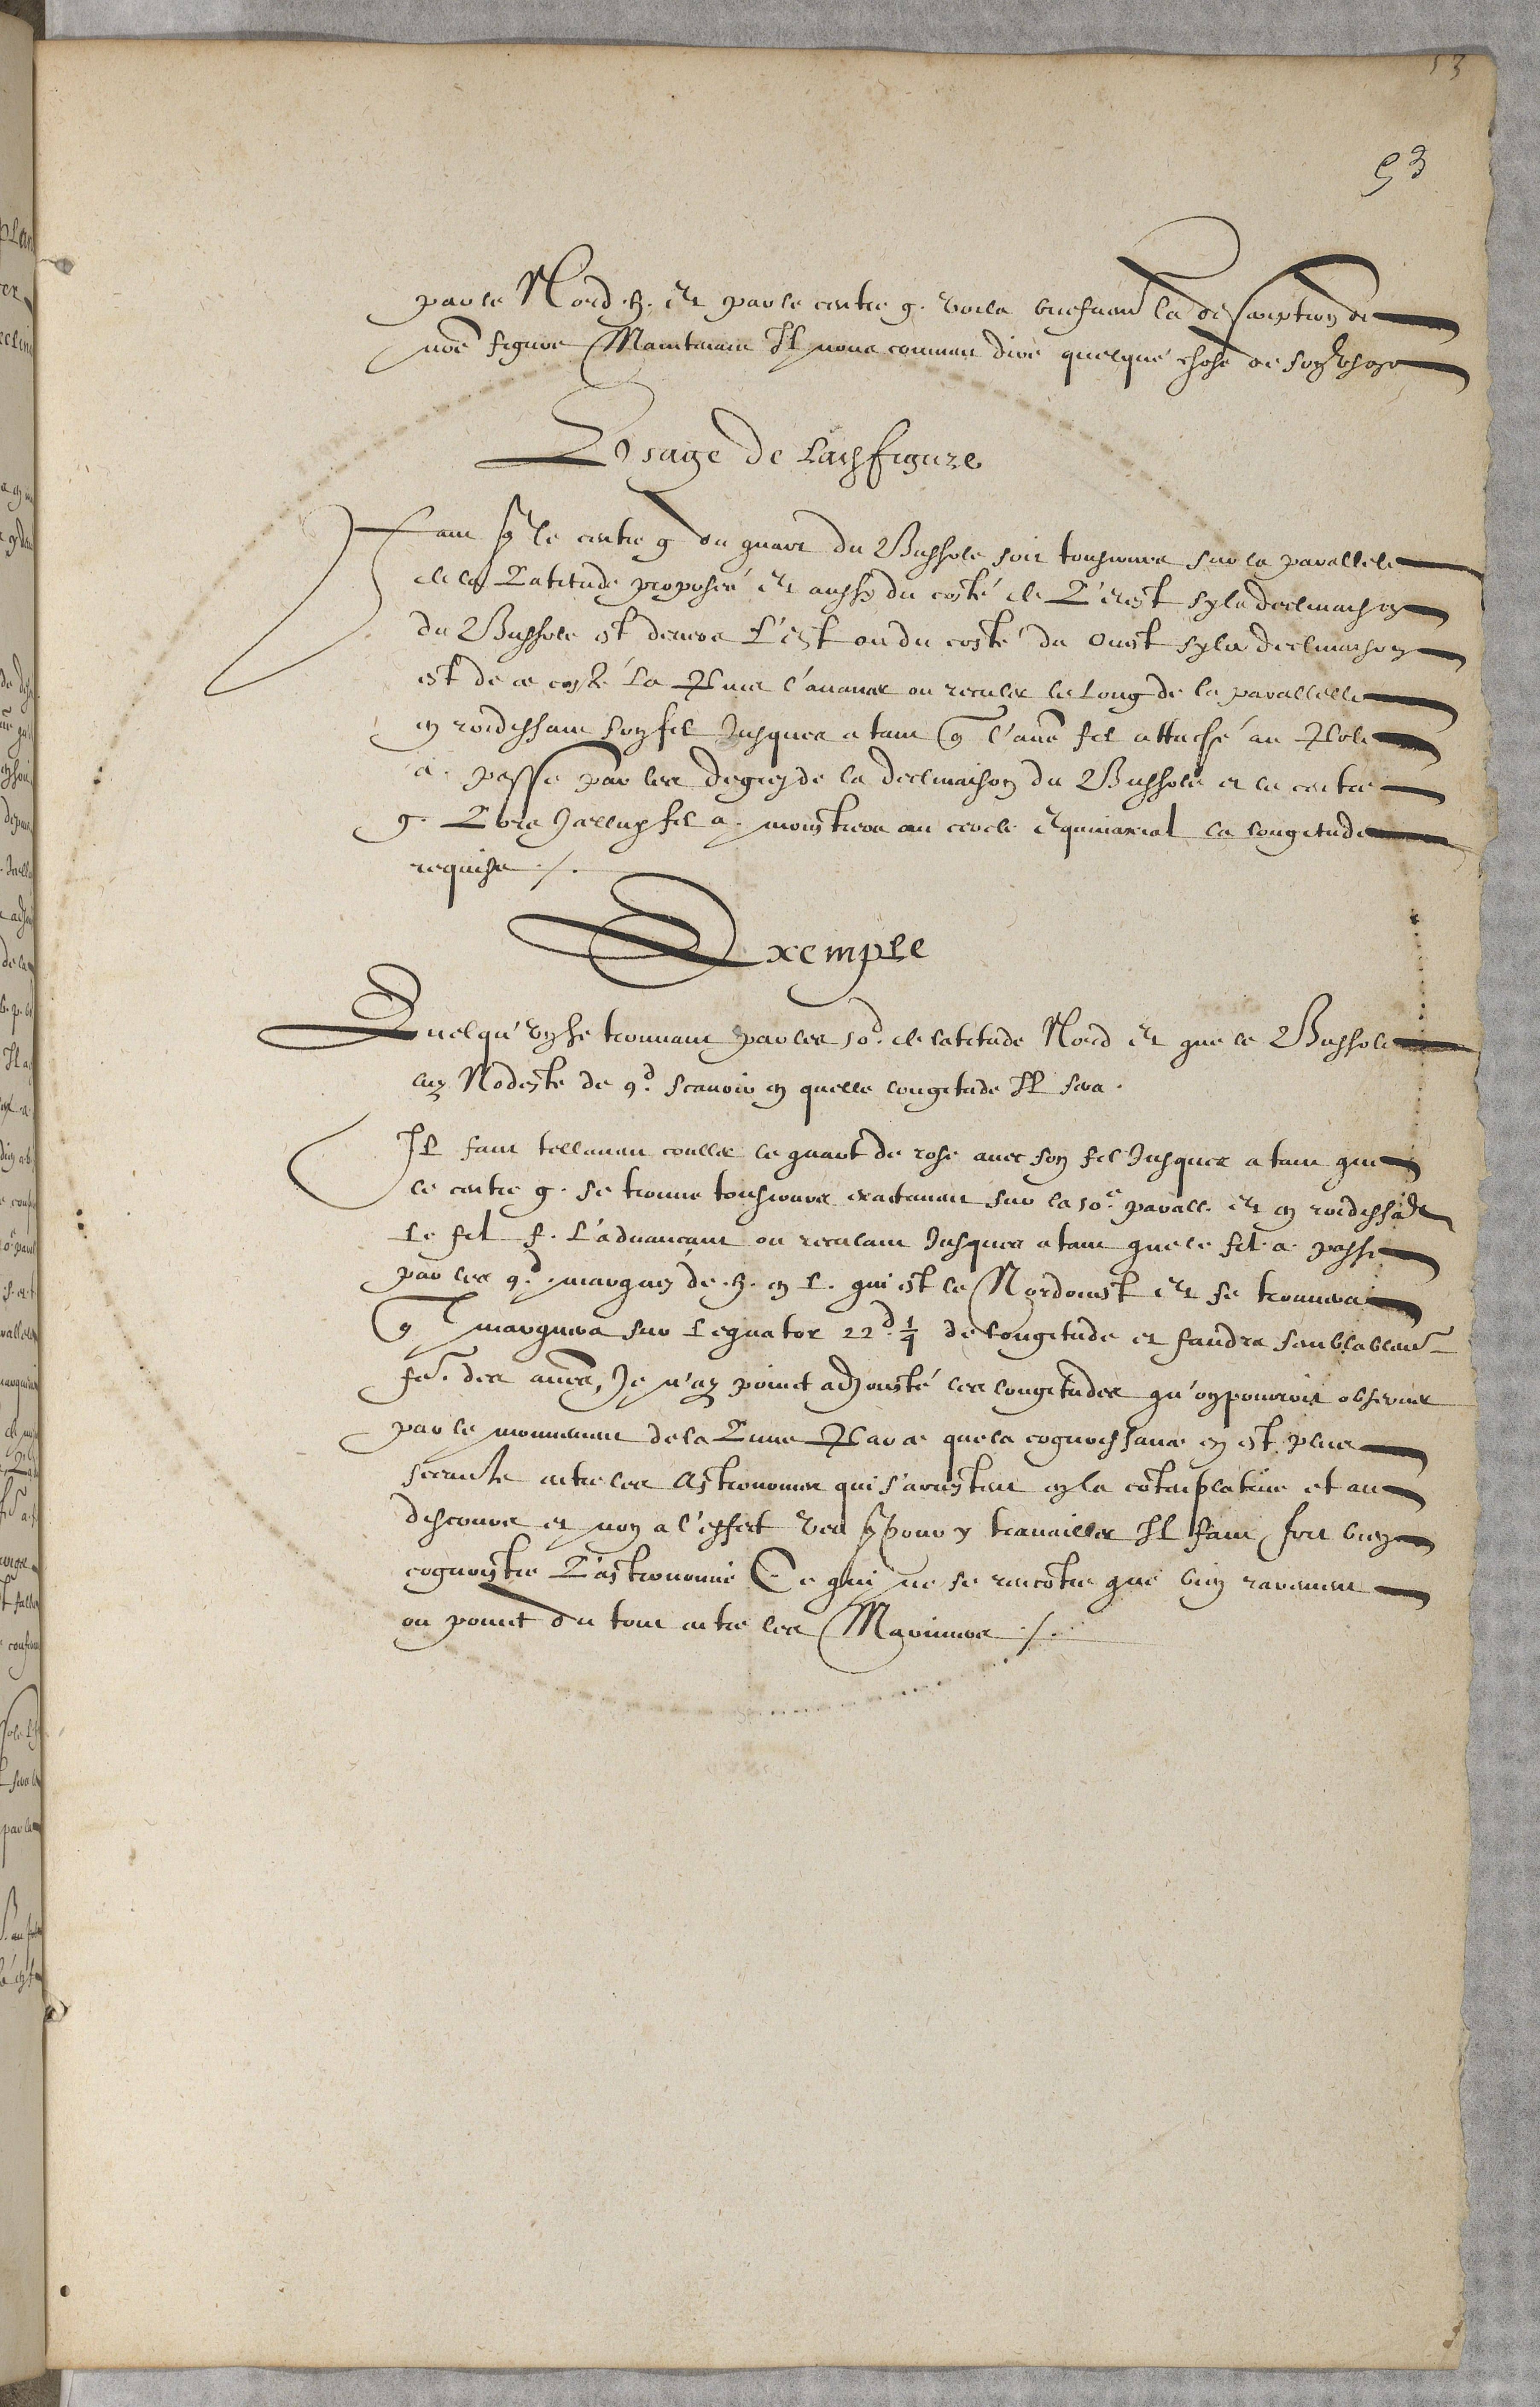 53
53
par le Nord h. Et par le centre g. voila briefuem̃ la description de
nrẽ figure Maintenant Il nous conuient dire quelque chose de son vsage
Vsage de lad figure
Faut q̃ le centre g du quart du Bussole soit tousiours sur la parallele
de la Latitude proposeé Et aussy du costé de L'ouest sy la declinaison
du Bussole est deuers L'est ou du costé du Ouest sy la declinaison
est de ce costé La Puis l'auancer ou reculer le Long de la parallelle
en roidissant son fil Jusques a tant q̃ l'autrẽ fil attaché au Pole
a. passe par les degrez de la declinaison du Bussole et le centre
g. Lors Jcelluy fil a. monstrera au cercle Equinoxial la longitude
requise ./.
Exemple
Quelqu'vn se trouuant par les 50.d de latitude Nord Et que le Bussole
luy Nodeste de 9.d scauoir en quelle longitude Il sera.
Il faut tellement couller le quart de rose auec son fil Jusques a tant que
le centre g. se trouue tousiours exactement sur la 50.e parall. Et en roidissãt
Le fil f. L'aduançant ou reculant Jusques a tant que le fil a passe
par les 9.d marquez de h. en l. qui est le Nordouest Et se trouuera
q̃ marquera sur l'equator 22.d 1/4 de longitude et faudra semblablem̃
fẽ. des autrẽs, Je n'ay point adjousté les longitudes qu'on pourroit obseruer
par le mouuement de la Lune Par ce que la cognoissance en est plus
seante entre les Astronomes qui s'arrestent en la cõtemplatiue et au
discours et non a l'effect veu q̃ pour y trauailler Il faut fort bien
cognoistre L'astronomie Ce qui ne se rencõtre que bien rarement
ou point du tout entre les Mariniers ./.